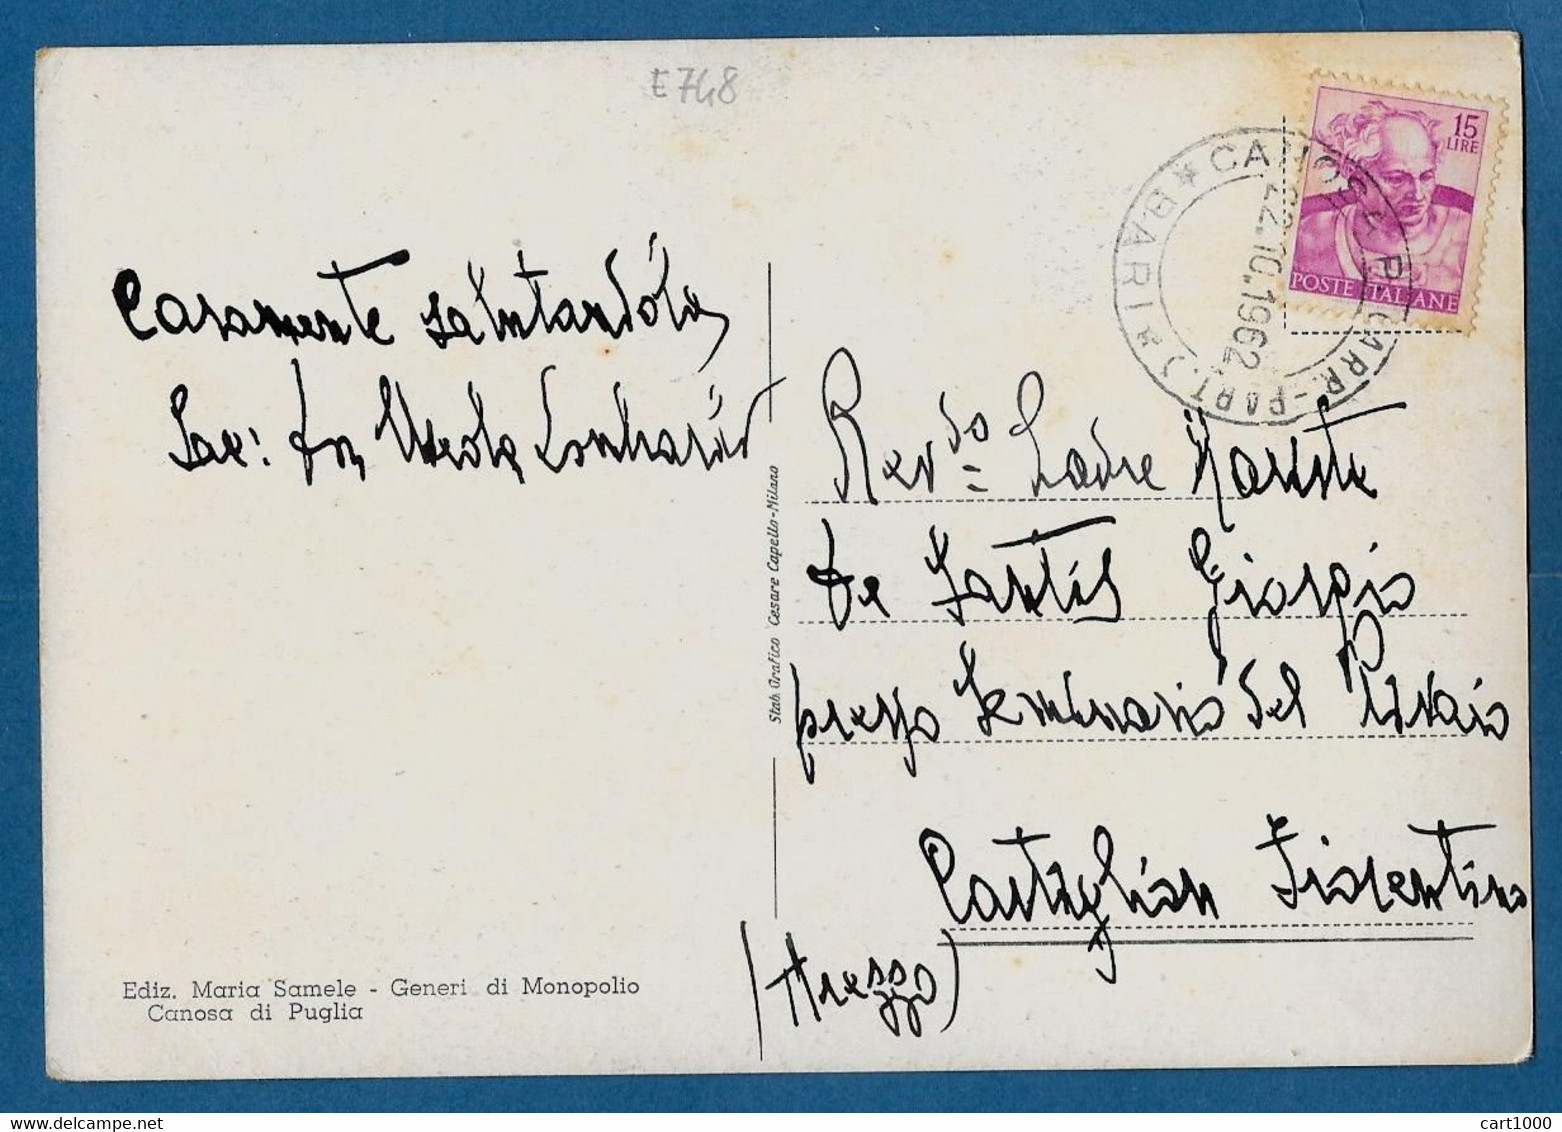 E 748
15
LIRE
POSTE ITALIANE
CANOSA P. (ARR.-PART.) * BARI *
22.10.1962
Caramente salutandola
Sac:
Rev.do Padre
De Santis Giorgio
presso Seminario del
Castiglion Fiorentino
(Arezzo)
Stab. Grafico Cesare Capello-Milano
Ediz. Maria Samele - Generi di Monopolio
Canosa di Puglia
cart1000